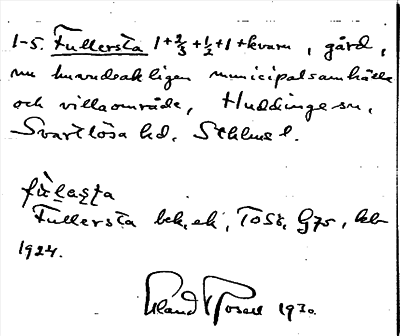 1-5. Fullersta 1+2/3+1/2+1+kvarn, gård,
nu huvudsakligen municipalsamhälle
och villaområde, Huddinge sn,
Svartlösa hd, Sthlms l.
Fullersta bek, ek, ToSö, G75, kb
1924.
1930.